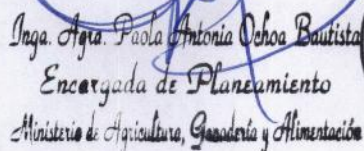 Inga. Agra. Paola Antonia Ochoa Bautista
Encargada de Planeamiento
Ministerio de Agricultura, Ganadería y Alimentación